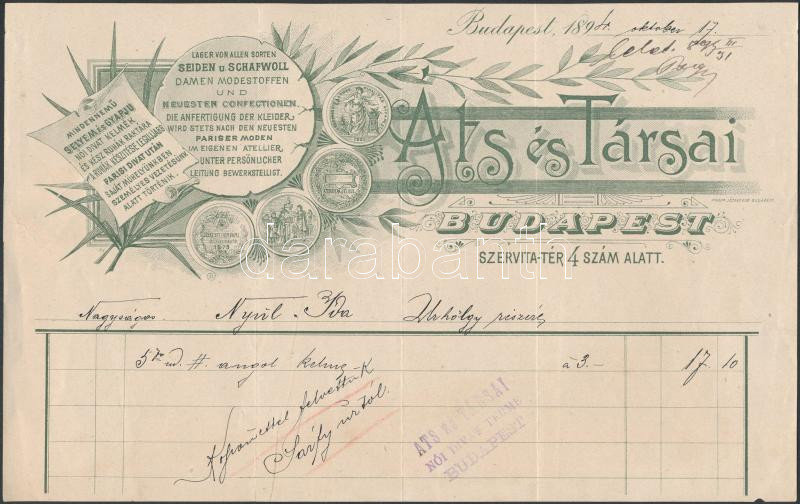 Budapest, 1894. oktober 17.
LAGER VON ALLEN SORTEN
SEIDEN u. SCHAFWOLL
DAMEN MODESTOFFEN
UND
NEUESTEN CONFECTIONEN.
DIE ANFERTIGUNG DER KLEIDER,
WIRD STETS NACH DEN NEUESTEN
PARISER MODEN
IM EIGENEN ATELLIER,
UNTER PERSÖNLICHER
LEITUNG BEWERKSTELIGT.
MINDENNEMŰ
SELYEM, ÉS GYAPJU
NŐI DIVAT KELMÉK
ÉS KÉSZ RUHÁK RAKTÁRA
A RUHÁK KÉSZITÉSE LEGUJABB
PÁRISI DIVAT UTÁN
SAJÁT MŰHELYÜNKBEN
SZEMÉLYES VEZETÉSÜNK
ALATT TÖRTÉNIK.
1873
Áts és Társai
BUDAPEST
SZERVITA-TÉR 4 SZÁM ALATT.
darabanth.com
Nagyságos Nyúl Ida Urhölgy részére
angol kelme à 3 - 17 10
Köszönettel felvettük
ATS ÉS TÁRSAI
NŐI DIVAT TERME
BUDAPEST